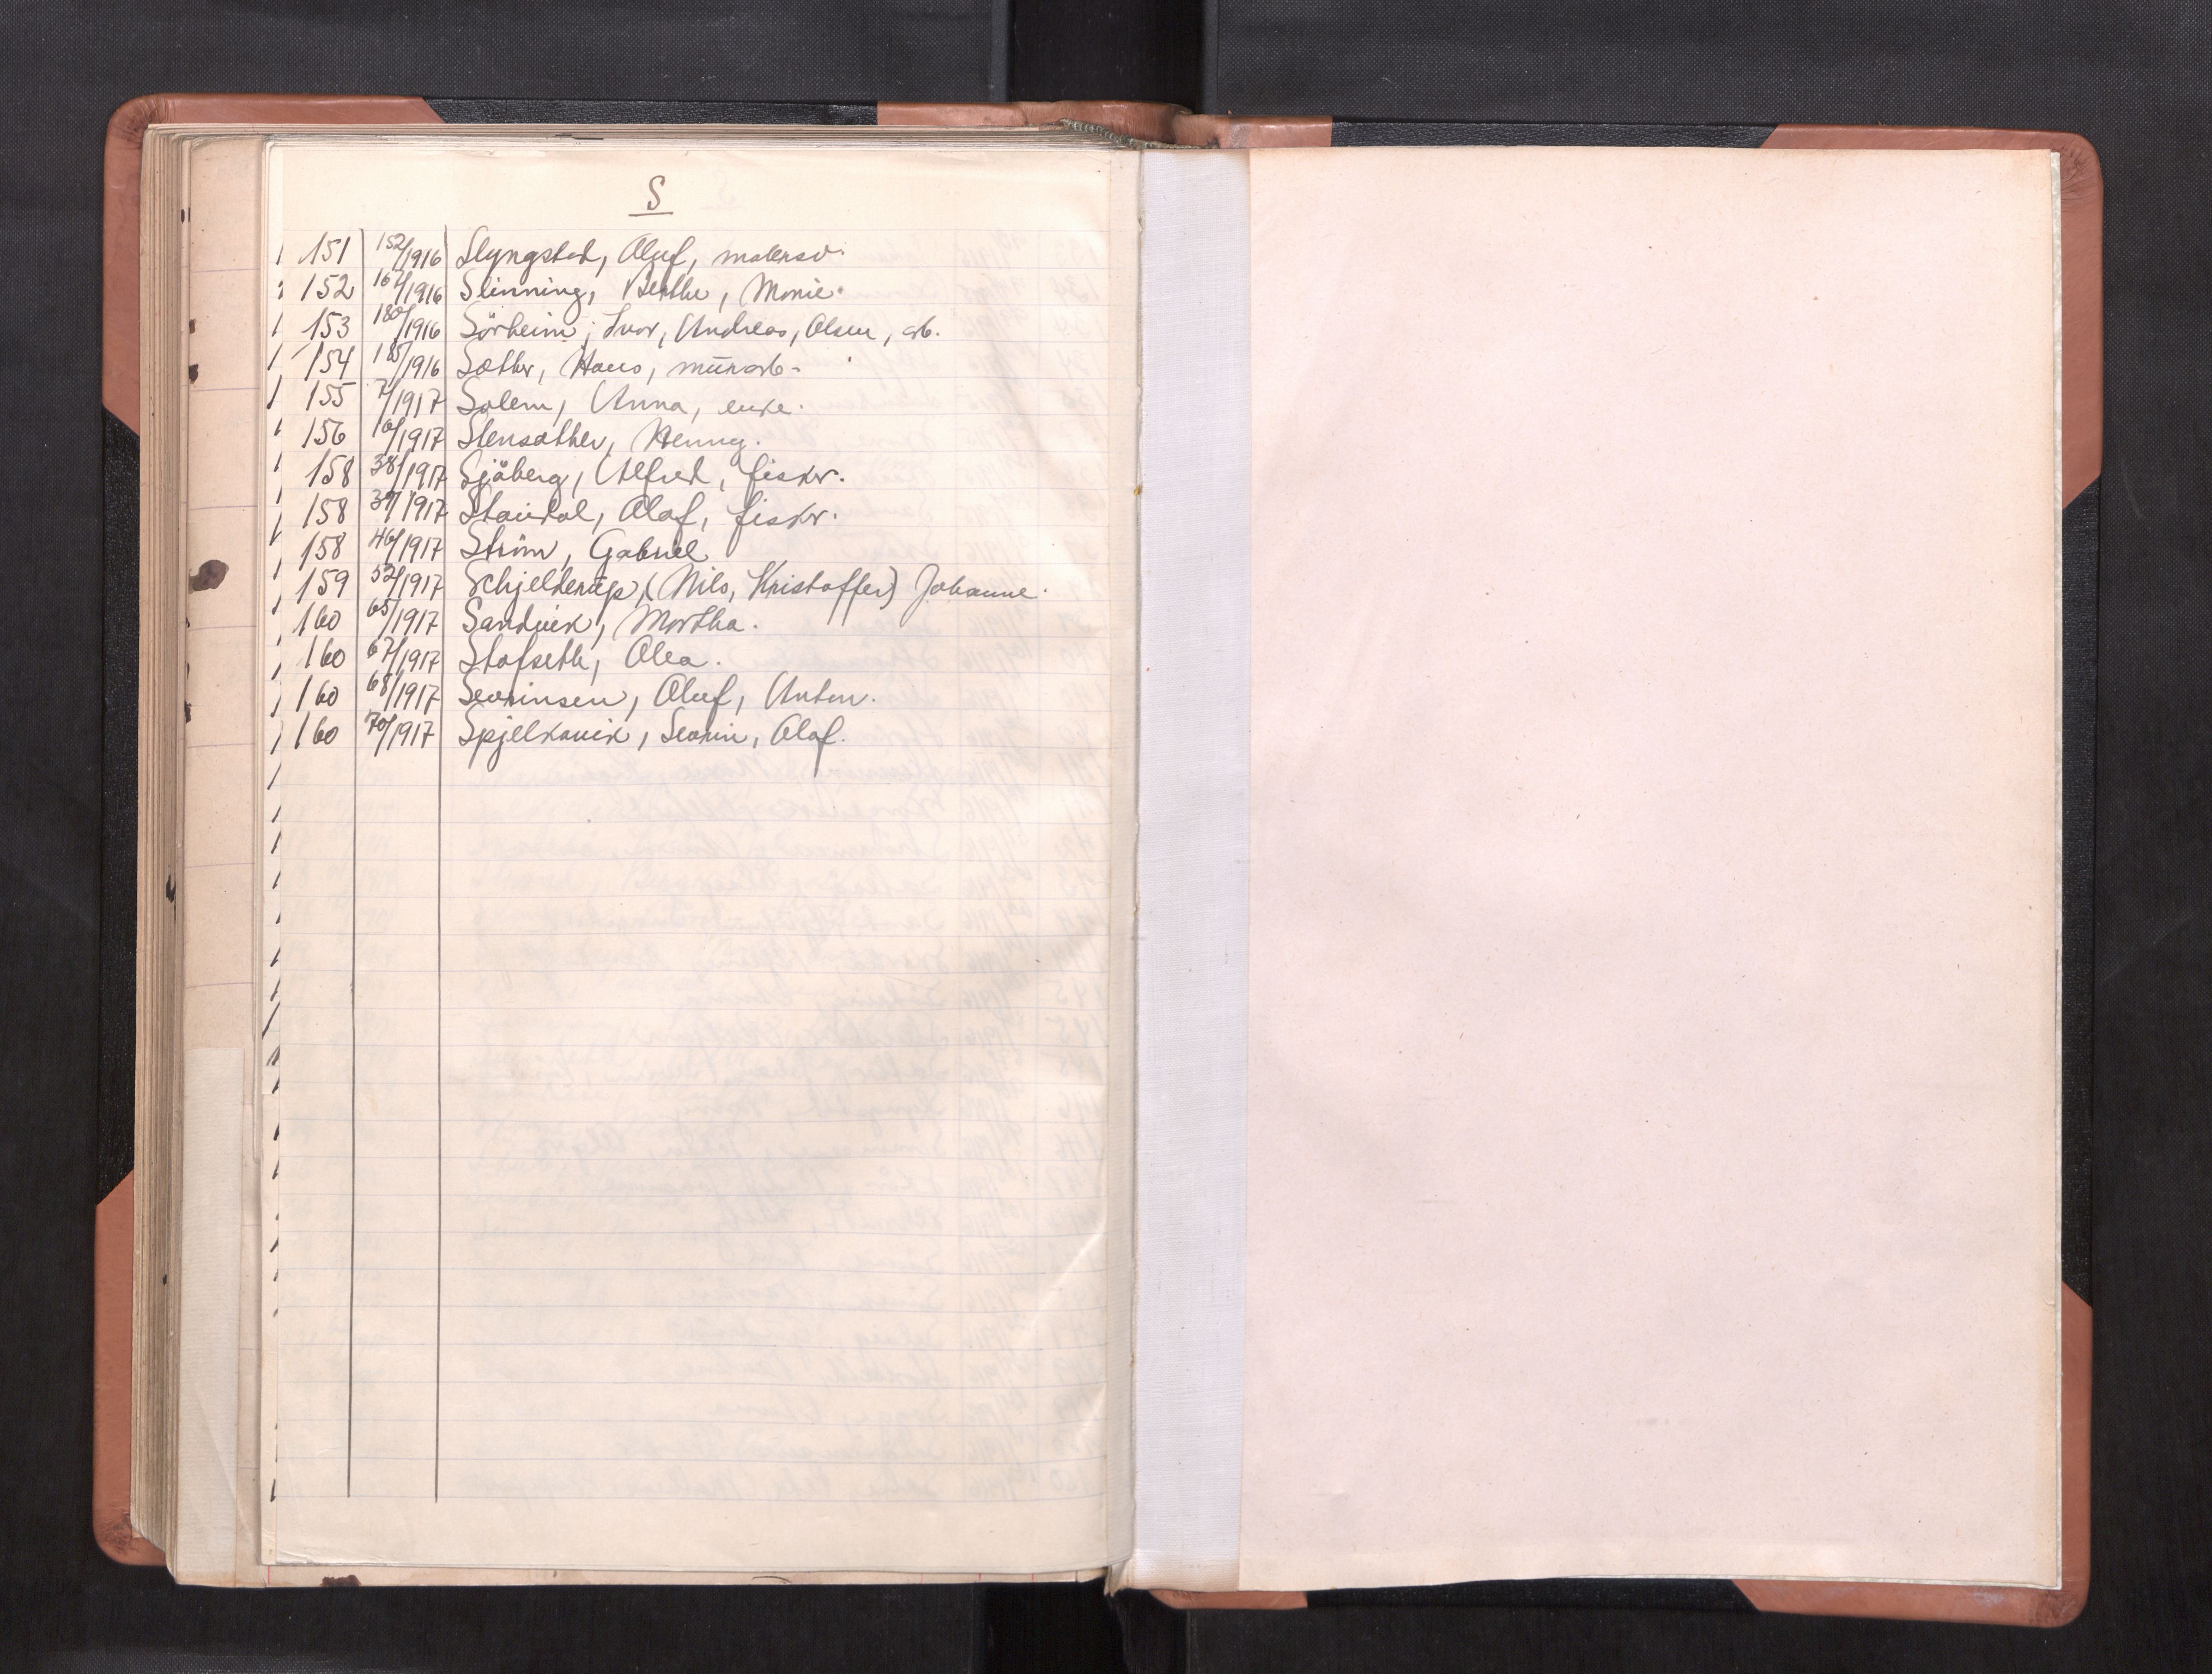 S
151 152/1916 Slyngstad, Oluf, malersv.
152 167/1916 Slinning, Berthe, Marie.
153 180/1916 Sörheim, Ivar, Andreas, Olsen, arb.
154 185/1916 Sæther, Hans, murarb.
155 7/1917 Solem, Anna, enke.
156 16/1917 Stensæther, Henny.
158 38/1917 Sjöberg, Alfred, fisker.
158 39/1917 Standal, Olaf, fisker.
158 46/1917 Ström, Gabriel
159 52/1917 Schjelderup, (Nils, Kristoffer) Johanne.
160 65/1917 Sandvik, Martha.
160 67/1917 Stafseth, Olea.
160 68/1917 Severinsen, Oluf, Anton.
160 70/1917 Spjelkavik, Severin, Olaf.